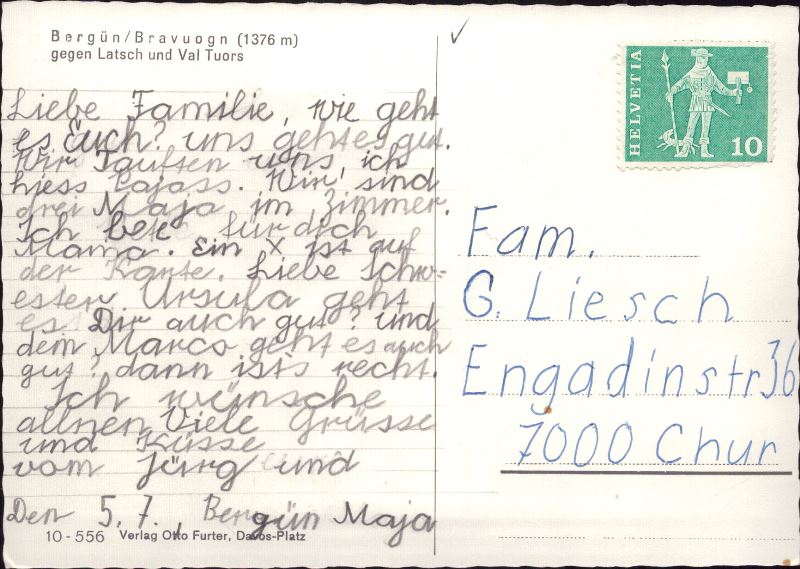 Bergün/Bravuogn (1376 m)
gegen Latsch und Val Tuors
Liebe Familie, wie geht
es euch? uns geht es gut.
Wir Tauften uns ich
hiess Bajass. Wir sind
drei Maja im Zimmer.
Ich bete für dich
Mama. Ein X ist auf
der Karte. Liebe Schw=
ester Ursula geht
es Dir auch gut? und
dem Marco geht es auch
gut? dann ists recht.
Ich wünsche
allnen Viele Grüsse
und Küsse
vom Jürg und
Den 5. 7. Bergün Maja
10 - 556 Verlag Otto Furter, Davos-Platz
HELVETIA
10
Fam.
G. Liesch
Engadinstr 36
7000 Chur